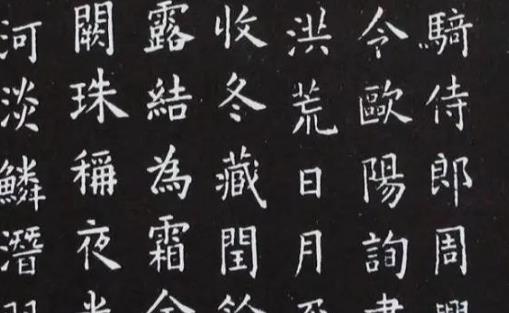 騎侍郎周
令歐陽詢
洪荒日月
收冬藏閏
露結為霜金
闕珠稱夜光
河淡鱗潛